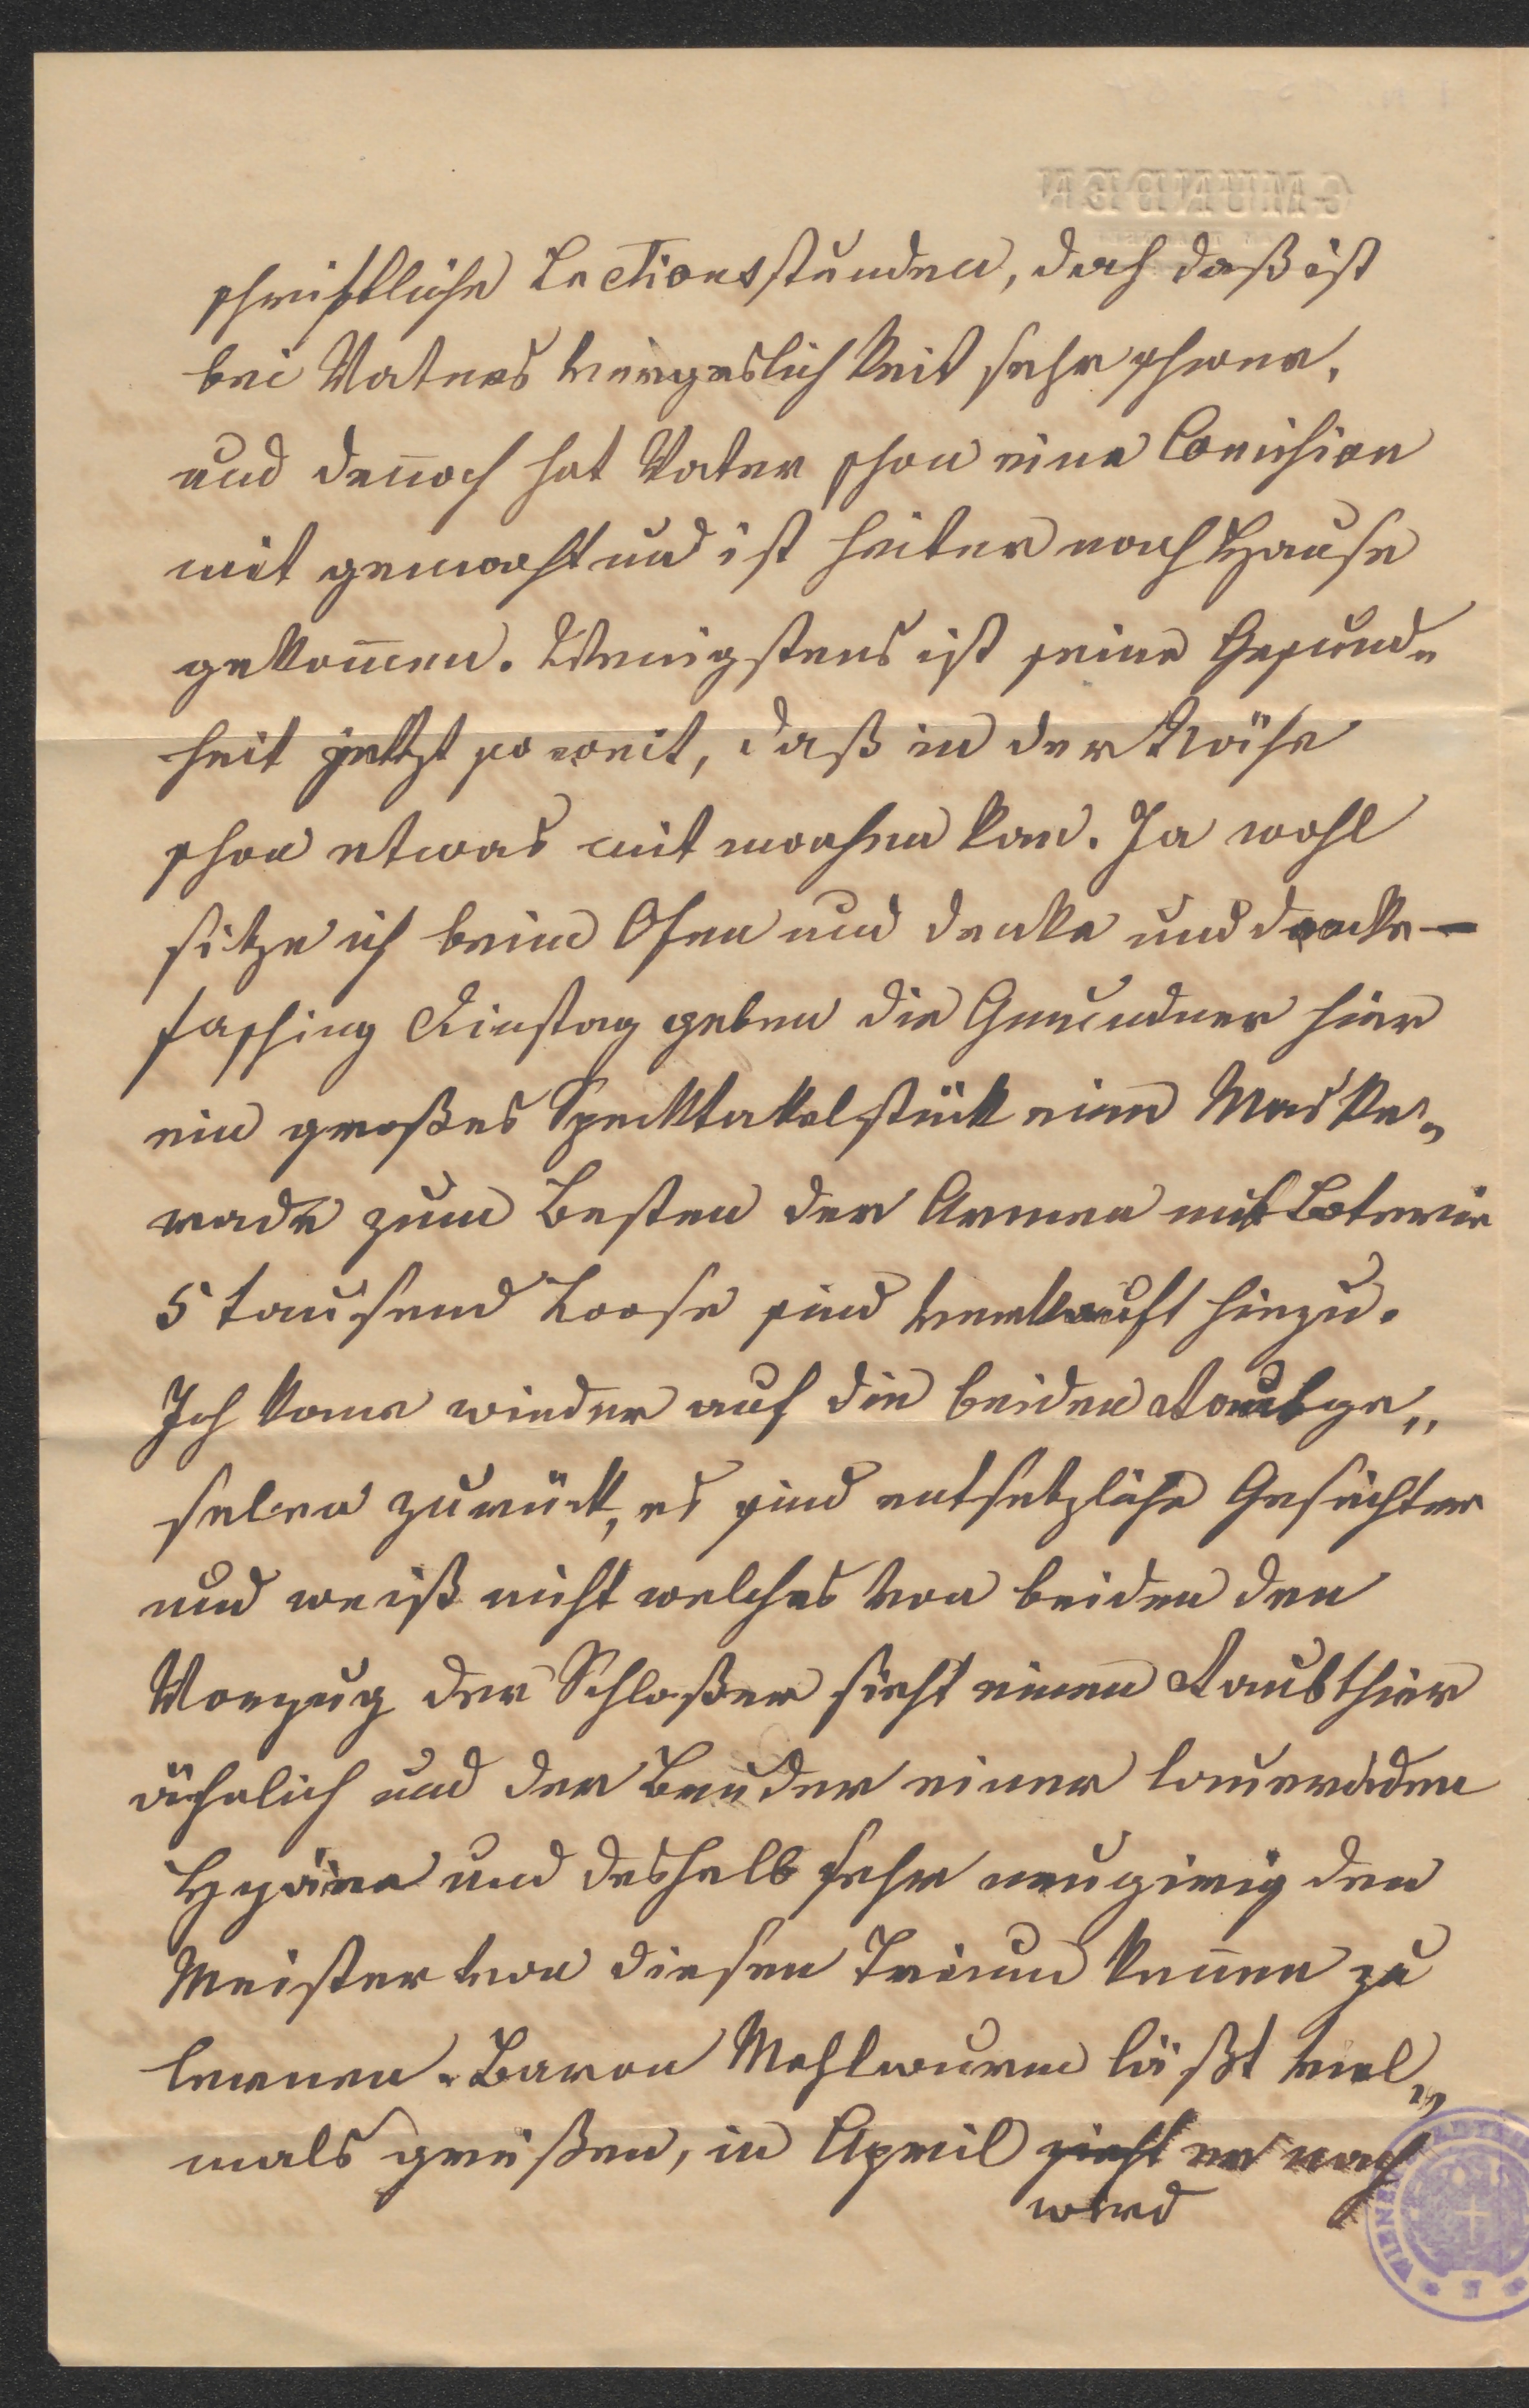 GMUNDEN
schriftliche Lectionsstunden, doch daß ist
bei Vaters Vergeslichkeit sehr schwer,
und den̄och hat Vater schon eine Comision
mit gemacht und ist heiter nach Hause
gekom̄en. Wenigstens ist seine Gesund„
heit jetzt so weit, daß in der Nähe
schon etwas mit machen kan. Ja wohl
sitze ich beim Ofen und denke und denke —
fasching Dinstag geben die Gmundner hier
ein großes Specktakelstück eine Maske„
rade zum Besten der Armen mit Loterie
5 tausend Loose sind verkauft hiezu.
Ich kome wieder auf die beiden Raubge„
sellen zurück, es sind entsetzliche Gesichter
und weiß nicht welches von beiden den
Vorzug der Schloßer sieht einen Raubthier
ähnlich und der Bruder einer lauernden
Hyäne und deshalb sehr neugirig den
Meister von diesen kennen zu
lernen. Baron Mehlwurm läßt viel„
mals grüßen, in April zieht er nach
wird
WIENER